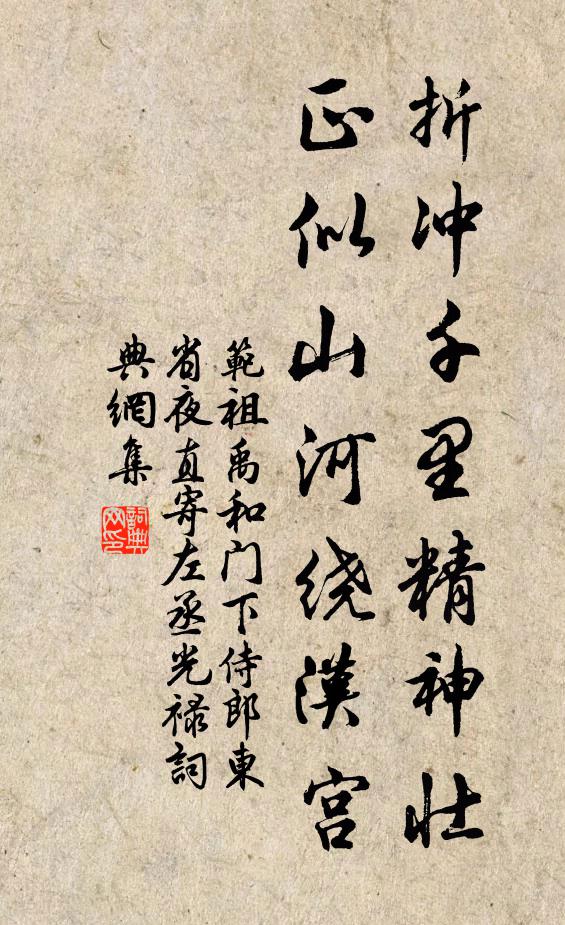 折冲千里精神壮
正似山河绕漢宫
範祖禹和门下侍郎東
省夜直寄左丞光禄詞
典網集
詞典
网印